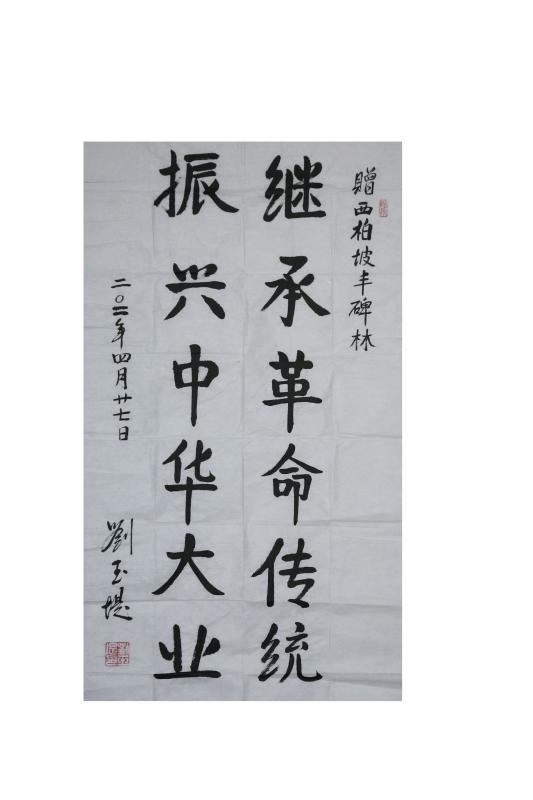 赠西柏坡丰碑林
继承革命传统
振兴中华大业
二〇一一年四月廿七日
劉玉堤